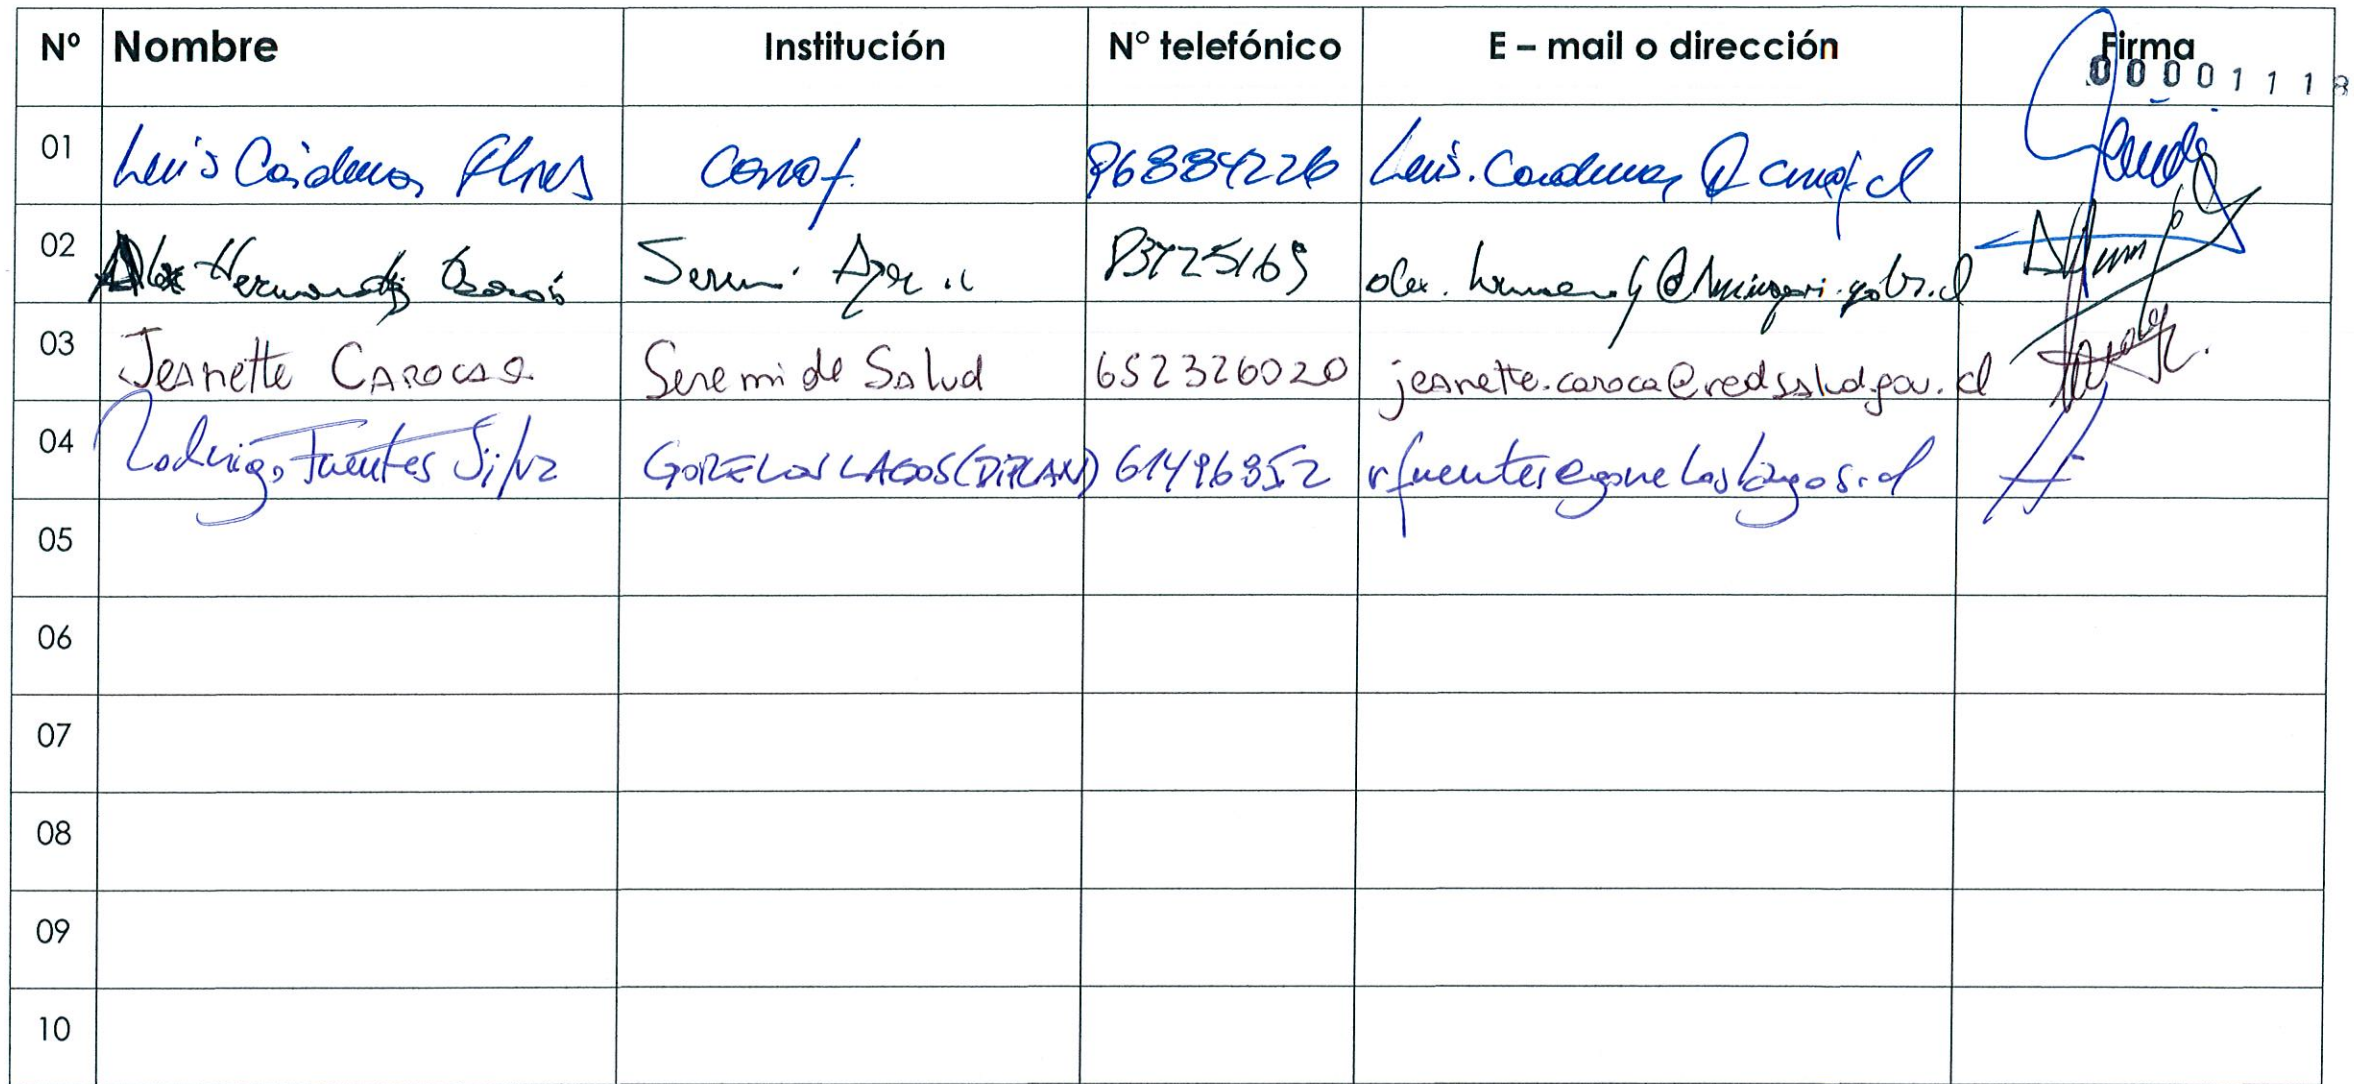 Nº Nombre Institución Nº telefónico E – mail o dirección Firma
00001118
01 Luis Cárdenas Conaf. 96884226 Luis.Cardenas@conaf.cl
02 Alex Hernandez Seremi 83725169
03 Jeanette CAROCA Seremi de Salud 652326020 jeanette.caroca@redsalud.gov.cl
04 Rodrigo Fuentes Silva GORE LOS LAGOS (DIPLAN) 61496852 rfuentes@goreloslagos.cl
05
06
07
08
09
10